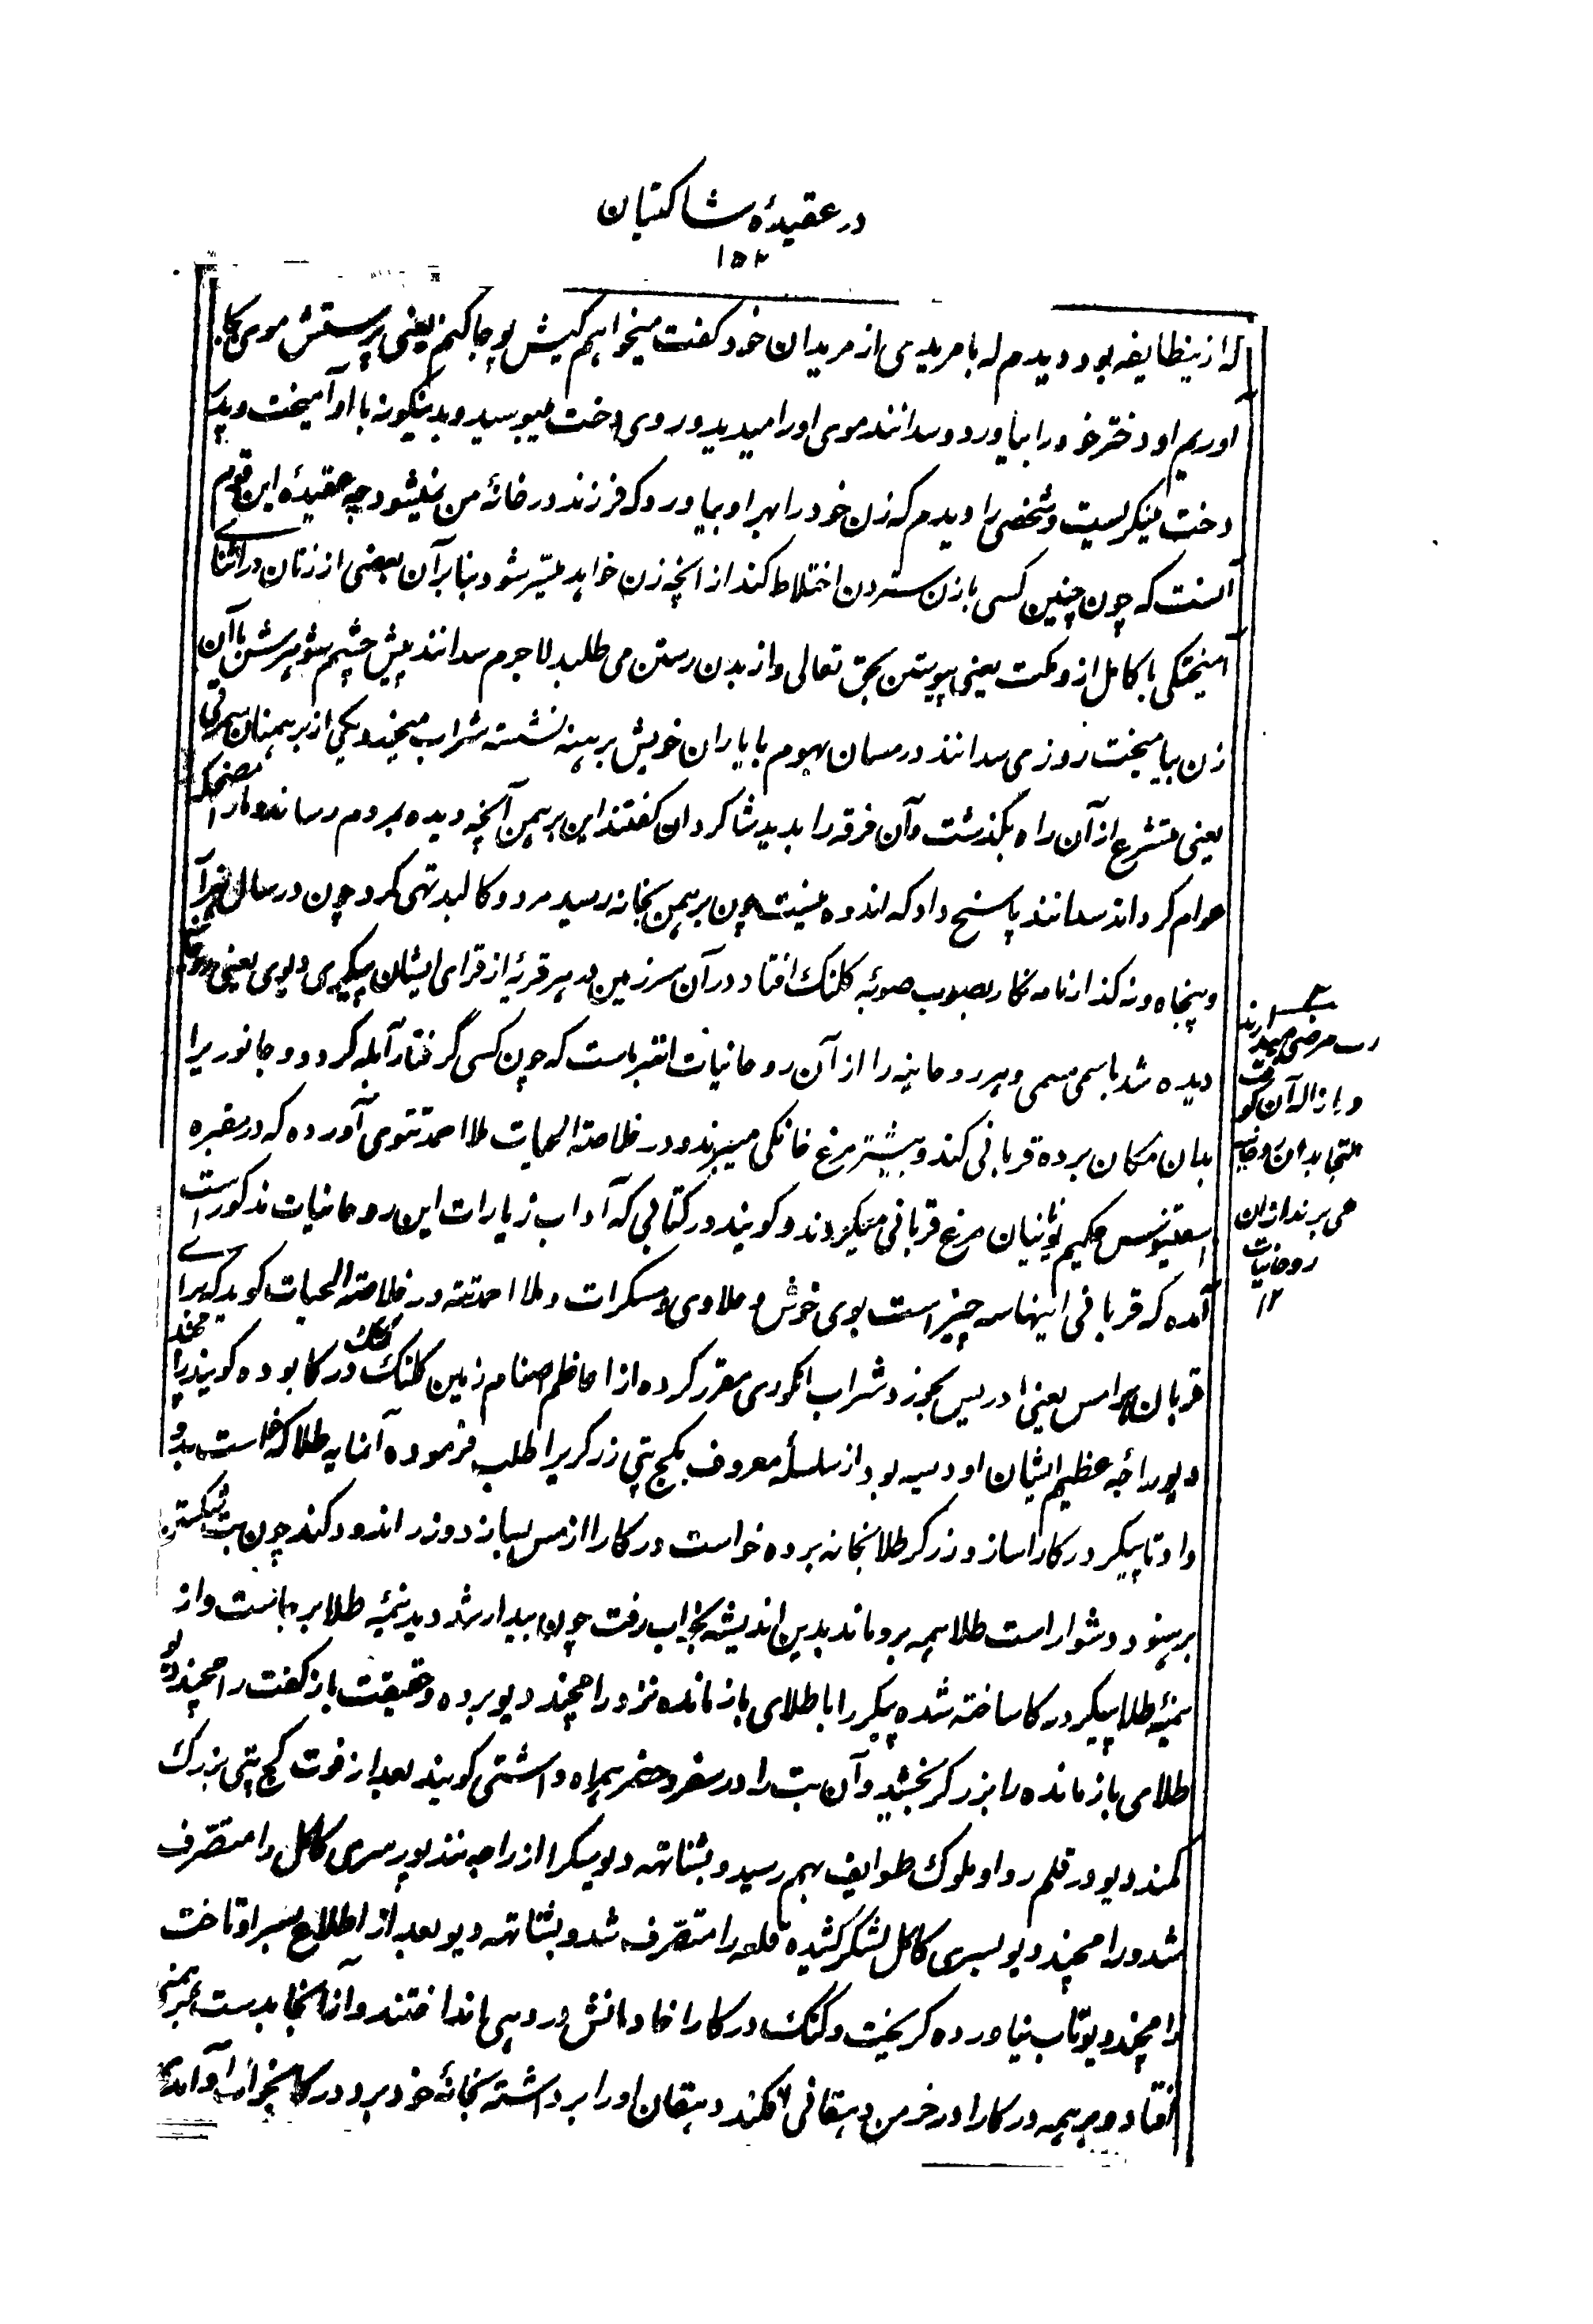 در عقیدهٔ شاکتیان
۱۵۲
که ازینطایفه بود دیدم که با مریدی از مریدان خود کفت میخواهم کیش پوجا کنم یعنی پرستش موی بجا
آوریم او دختر خود را بیاورد و سدانند موی او را میدید و روی دخت میبوسید و بدینکونه با او آمیخت و پدر
دخت مینکریست و شخصی را دیدم که زن خود را بهر او بیاورد که فرزند در خانهٔ من نمیشود چه عقیدهٔ این قوم
آنست که چون چنین کسی با زن ستردن اختلاط کند از انچه زن خواهد میسّر شود بنا بر آن بعضی از زنان در اثنای
آمیختکی با کامل ازو مکت یعنی پیوستن بحق تعالی و از بدن رستن می طلبد لاجرم سدانند پیش چشم شوهرش با آن
زن بیامیخت روزی سدانند در مسان بهوم با یاران خویش برهنه نشسته شراب میخورد یکی از برهمنان سمرتی
یعنی متشرع از آن راه بکذشت و آن فرقه را بدید شاکردان کفتند این برهمن آنچه دیده بمردم رساند و مارا مضحکه
عوام کرداند سدانند پاسخ داد که اندوه نیست چون برهمن بخانه رسید مرد و کالبد تهی کرد چون در سال هزار
و پنجاه و نه کذار نامه نکار بصوب صوبه کلنک افتاد در آن سرزمین در هر قریهٔ از قرای ایشان پیکری دیوی یعنی روحانیه
دیده شد باسمی مسمی و هر روحانیه را از آن روحانیات اثرهاست که چون کسی گرفتار آبله کردد و جانوریرا
بدان مکان برده قربانی کند و بیشتر مرغ خانکی میبرند و در خلاصة الحیات ملا احمد تتوی آورده که در مقبره
اسقلینوس حکیم یونانیان مرغ قربانی میکردند و کویند در کتابی که آداب زیارات این روحانیات مذکور است
آمده که قربانی اینها سه چیز است بوی خوش و حلاوی و مسکرات و ملا احمد تته در خلاصة الحیات کوید که برای
قربان هرامس یعنی ادریس بجوز و شراب انکوری مقرر کرده از اعاظم اصنام زمین کلنک درکا بوده کویند رامچند
دیو راجه عظیم ایشان اودیسه بود از سلسلهٔ معروف بکج پتی زرکریرا طلب فرموده آنمایه طلا که خواست بدو
داد تا پیکر درکا را سازد زرکر طلا بخانه برده خواست درکا را از مس بسازد و زر اندود کند چون بت شکستن
بر هنود دشوار است طلا همه برو ماند بدین اندیشه بخواب رفت چون بیدار شد دید نیمهٔ طلا بر جاست و از
نیمهٔ طلا پیکر درکا ساخته شده پیکر را با طلای باز مانده نزد رامچند دیو برده و حقیقت باز کفت رامچند دیو
طلای باز مانده را بزرکر بخشید و آن بت را در سفر و حضر همراه داشتی کویند بعد از فوت کج پتی بزرک
مکند دیو در قلمرو او ملوک طوایف بهم رسید و بشناته دیو سکرا از راجه نندپور سری کاکل را متصرف
شد و رامچند دیو بسری کاکل لشکر کشیده قلعه را متصرف شد و بشناته دیو بعد از اطلاع بسر او تاخت
رامچند دیو تاب نیاورده کریخت و کنک درکا را خادمانش در دهی انداختند و از آنجا بدست برهمنی
افتاد و برهمن درکا را در خرمن دهقانی افکند دهقان او را برداشته بخانهٔ خود برد درکا بخواب او آمد
مرضی میدارند
و ازاله آن
التجا بدان روحانیه
می برند از آن
روحانیات
۱۲